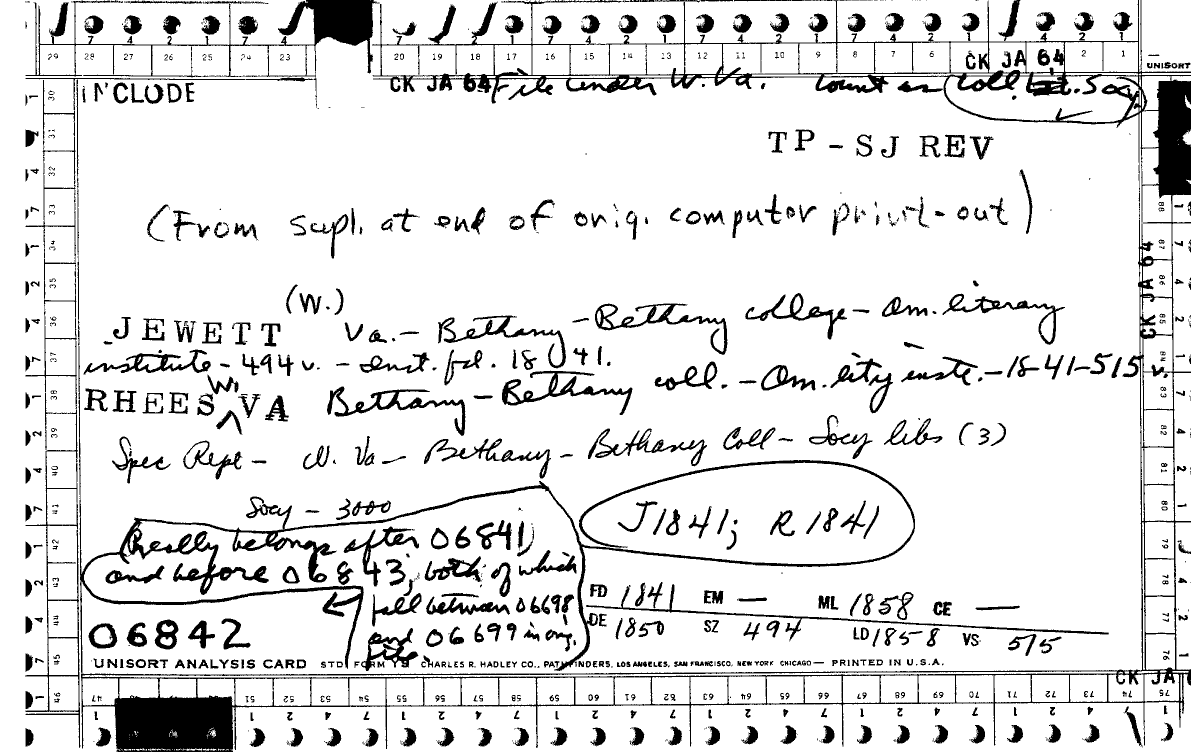 7 4 2 1 7 4 7 4 2 1 7 4 2 1 7 4 2 1
29 28 27 26 25 24 23 20 19 18 17 16 15 14 13 12 11 10 9 8 7 6 2 1
CK JA 64
UNISORT
INCLUDE CK JA 64 File under W. Va. Count as Coll. Lit. Socy.
TP - SJ REV
(From supl. at end of orig. computor print-out)
(W.)
JEWETT Va. — Bethany — Bethany college — Am. literary
institute — 494 v. — Inst. fd. 1841.
W.
RHEES VA Bethany — Bethany coll. — Am. lity inste. — 18-41-515 v.
Spec Rept — W. Va — Bethany — Bethany Coll — Socy libs (3)
Socy — 3000
J 1841; R 1841
(Really belongs after 06841)
and before 06843, both of which
fall between 06698
and 06699 in orig.
file.
FD 1841 EM — ML 1858 CE —
DE 1850 SZ 494 LD 1858 VS 515
06842
UNISORT ANALYSIS CARD STD FORM Y9 CHARLES R. HADLEY CO., PATHFINDERS, LOS ANGELES, SAN FRANCISCO, NEW YORK CHICAGO — PRINTED IN U.S.A.
CK JA 64
CK JA 6
47 51 52 53 54 55 56 57 58 59 60 61 62 63 64 65 66 67 68 69 70 71 72 73 74 75